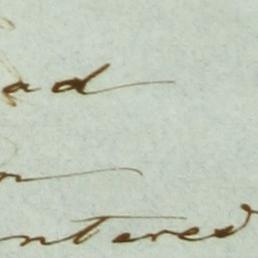 ad
n
ntered